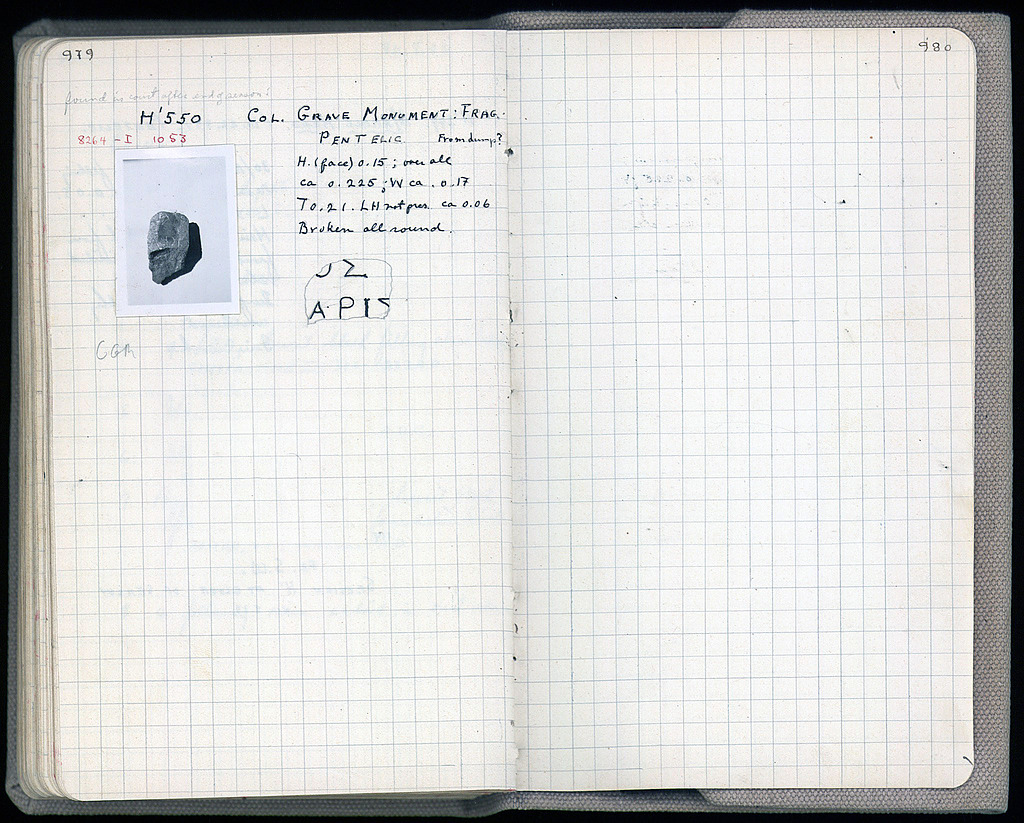 979
980
found in court after end of season!
H'550 COL. GRAVE MONUMENT: FRAG.
8264 - I 1053 PENTELIC From dump?
H. (face) 0.15; over all
ca 0.225; W ca. 0.17
T 0.21. LH not pres. ca 0.06
Broken all round.
ΟΣ
ΑΡΙΣ